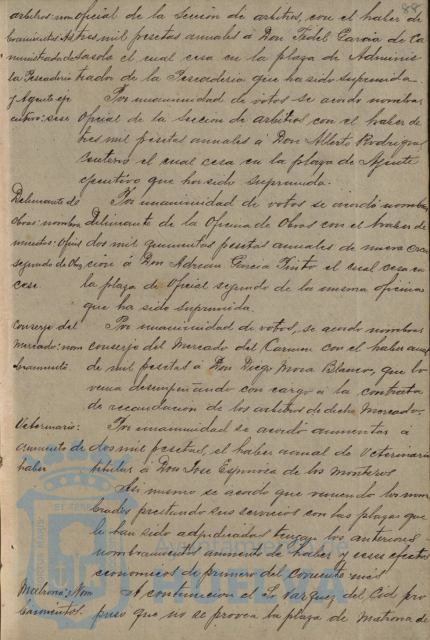 88
arbitros: nom oficial de la Sección de arbitros, con el haber de
bramientos As tres mil pesetas anuales á Don Fidel Garcia de Ca
ministrador sasola el cual cesa en la plaza de Adminis
la Pescaderia trador de la Pescaderia que ha sido suprimida.
y Agente eje Por unanimidad de votos se acordó nombrar
cutivo: cese oficial de la Sección de arbitros con el haber de
tres mil pesetas anuales á Don Alberto Rodriguez
el cual cesa en la plaza de Agente
ejecutivo que ha sido suprimida.
Delineante de Por unanimidad de votos se acordó nombrar
obras: nombra Delineante de la Oficina de Obras con el haber de
mientos: Oficial dos mil quinientas pesetas anuales de nueva crea
segundo de Obras ción á Don Adrian Garcia Pinto el cual cesa en
cese la plaza de Oficial segundo de la misma oficina
que ha sido suprimida
Conserje del Por unanimidad de votos, se acordó nombrar
Mercado: nom conserje del Mercado del Carmen con el haber anual
bramiento de mil pesetas á Don Diego Mora Blanco, que lo
venia desempeñando con cargo á la contrata
de recaudación de los arbitros de dicho Mercado.
Veterinario: Por unanimidad se acordó aumentar á
aumento de dos mil pesetas, el haber anual de Veterinario
haber titular á Don Jose Espinosa de los Monteros
Asi mismo se acordó que viniendo los nom
brados prestando sus servicios con las plazas que
le han sido adjudicadas tengan los anteriores
nombramientos aumento de haber y cese efectos
economicos de primero del corriente mes.
Matrona: Nom A continuacion el Sr. Vazquez del Cid pro
bramientos. puso que no se provea la plaza de Matrona de